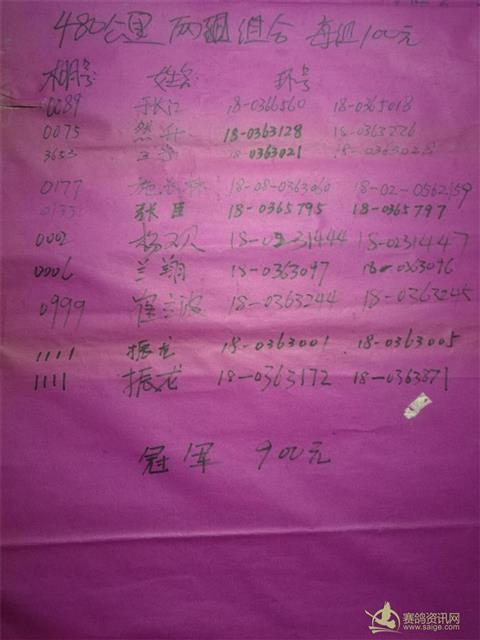 480公里 两羽组合 每组100元
棚号 姓名 环号
0089 于长江 18-0366560 18-0365018
0075 18-0363128 18-0363226
3653 18-0363021 18-0363028
0177 施长林 18-08-0363060 18-02-0562159
0133 张臣 18-0365795 18-0365797
0002 杨双人 18-0231444 18-0231447
0006 兰翔 18-0363097 18-0363096
0999 崔立波 18-0363244 18-0363245
1111 振龙 18-0363001 18-0363005
1111 振龙 18-0363172 18-0363871
冠军 900元
赛鸽资讯网
www.saige.com